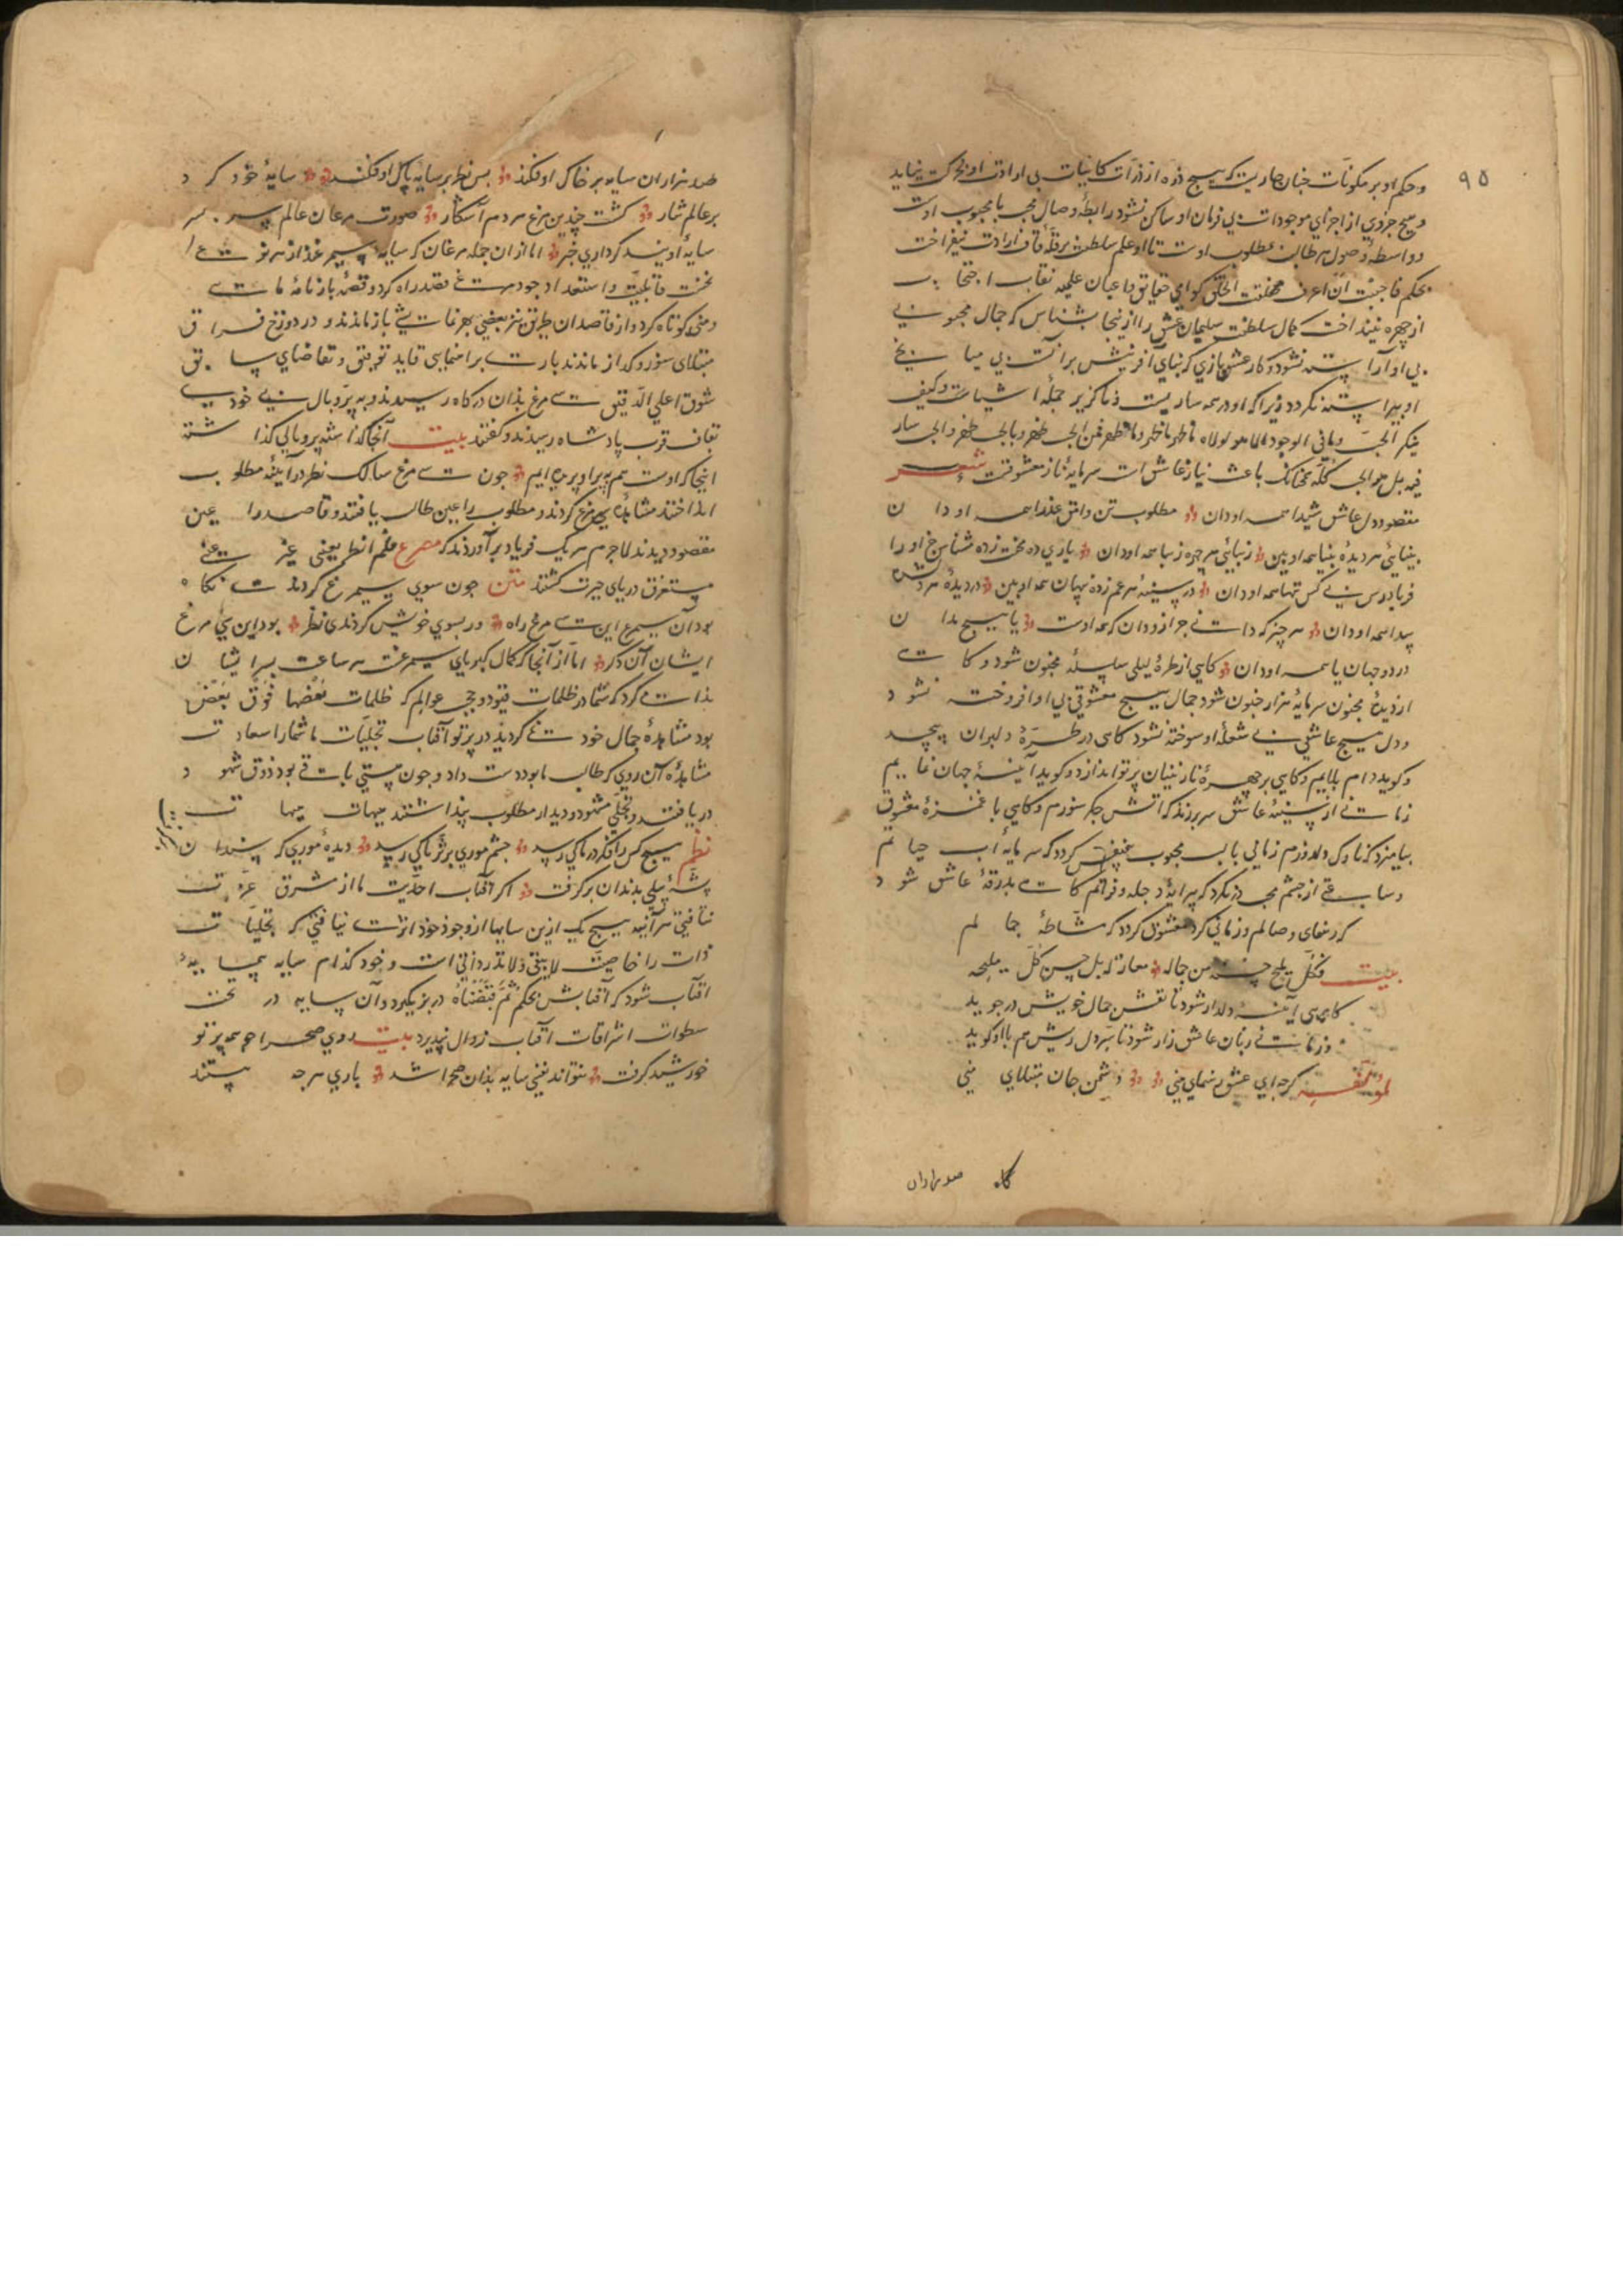 ٩٥
وحکم او بر مکونات چنان جاریست که هیچ ذره از ذرات کاینات بی ارادت او بحرکت نیاید
و هیچ جزوی از اجزای موجودات بی فرمان او ساکن نشود رابطهٔ وصال محب با محبوب اوست
و واسطه وصول هر طالب مطلوب اوست تا او علم سلطنت بر قلهٔ قاف ارادت نیفراخت
بحکم فاحببت ان اعرف فخلقت الخلق کو ای حقایق و اعیان علمیه نقاب احتجاب
از چهره نینداخت کمال سلطنت سلیمان عشق را ازینجا بشناس که جمال محبوبی
بی او آراسته نشود و کار عشق بازی که بنای آفرینش برآنست بی میانجی
او پیراسته نگردد زیرا که او در همه ساریست و ناگزیر جمله اشیاست وکیف
ینکر الحب و مافی الوجود الا هو ولولاه ما ظهر ما ظهر وما ظهر فمن الحب ظهر وبالحب ظهر والحب سار
فیه بل هو الحب کله چنانک باعث نیاز عاشق است سرمایهٔ ناز معشوقست شعر
مقصود دل عاشق شیدا همه او دان مطلوب تن وامق عذرا همه او دان
بینایئ هر دیدهٔ بینا همه او بین زیبایئ هر چهره زیبا همه او دان یاری ده محنت زده مشناس جز او را
فریادرس بی کس تنها همه او دان در سینهٔ هر غم زده پنهان همه او بین در دیدهٔ هر
پیدا همه او دان هر چیز که دانی جز ازو دان که همه اوست یا هیچ مدان
در دو جهان یا همه او دان گاهی از طرهٔ لیلی سلسلهٔ مجنون شود و گاهی
از دیدهٔ مجنون سرمایهٔ هزار جنون شود جمال هیچ معشوقی بی او افروخته نشود
و دل هیچ عاشقی بی شعلهٔ او سوخته نشود گاهی در طرهٔ دلبران پیچد
و گوید دام بلاییم و گاهی بر چهرهٔ نازنینان پرتو اندازد و گوید آینهٔ جهان نماییم
زمانی از سینهٔ عاشق سر برزند که آتش جگر سوزم و گاهی با غمزهٔ معشوق
بیامیزد که ناوک دلدوزم زمانی با لب محبوب متفق گردد که سرمایهٔ آب حیاتم
و ساعتی از چشم محب در نگرد که پیرایهٔ دجله و فراتم گاهی بدرقهٔ عاشق شود
که رهنمای وصالم و زمانی گرد معشوق گردد که مشاطهٔ جمالم
بیت فکل ملیح حسنه من جماله معار له بل حسن کل ملیحه
گاهی آینهٔ دلدار شود تا نقش جمال خویش در جوید
و زمانی زبان عاشق زار شود تا سر دل ریش هم با او گوید
لمؤلفه گرچه ای عشق رهنمای منی دشمن جان مبتلای منی
گاه صد هزاران
صد هزاران سایه بر خاک اوفکند پس نظر بر سایهٔ پاک اوفکند سایهٔ خود کرد
بر عالم نثار گشت چندین مرغ هر دم آشکار صورت مرغان عالم سر بسر
سایهٔ اویند گر داری خبر اما از آن جمله مرغان که سایه سیمرغند از هر نوعی را
بحسب قابلیت و استعداد وجود مرغی قصد راه کرد و قصهٔ بارنامهٔ مایی
و منی کوتاه کرد و از قاصدان طریق نیز بعضی بهر غایتی باز ماندند و در دوزخ فراق
مبتلای سوز و گداز ماندند بارت برهنمایی قاید توفیق و تقاضای سایق
شوق اعلی الرفیق سی مرغ بدان درگاه رسیدند و به پر و بال بی خودی
بقاف قرب پادشاه رسیدند و گفتند بیت آنجا که گذاشته پر و بالی گذاشته
اینجا که اوست هم بپر او پریده ایم چون سی مرغ سالک نظر در آینهٔ مطلوب
انداختند مشاهدهٔ سی مرغ کردند و مطلوب را عین طالب یافتند و قاصد را عین
مقصود دیدند لاجرم هر یک فریاد برآوردند که مصرع فلم انظر بعینی غیر عینی
مستغرق دریای حیرت گشتند متن چون سوی سیمرغ کردندی نگاه
بود آن سیمرغ این سی مرغ راه ور بسوی خویش کردندی نظر بود این سی مرغ
ایشان آن دگر اما از آنجا که کمال کبریای سیمرغست هر ساعت بر ایشان
ندا می کرد که شما در ظلمات قیود و حجب عوالم که ظلمات بعضها فوق بعض
بود مشاهدهٔ جمال خود می کردید در پرتو آفتاب تجلیات ما شما را سعادت
مشاهدهٔ آن روی که طالب ما بود دست داد و چون هستی باقی بود ذوق شهود
دریافتند و تجلی شهود و دیدار مطلوب پنداشتند هیهات هیهات
نظم هیچ کس را فکر در ما کی رسد چشم موری بر ثریا کی رسد دیدهٔ موری که سندان
پشهٔ پیلی بدندان بر گرفت اگر آفتاب احدیت ما از مشرق عزت
تافتی هر آینه هیچ یک ازین سایها از وجود خود اثرت نیافتی که تجلیات
ذات را خاصیت لا تبقی ولا تذر ذاتی است و خود کدام سایه همسایهٔ
آفتاب شود که آفتابش بحکم ثم قبضناه در بر نگیرد و آن سایه در تحت
سطوات اشراقات آفتاب زوال نپذیرد بیت روی صحرا چو همه پرتو
خورشید گرفت نتواند نفسی سایه بدان صحرا شد باری هر چه هستند